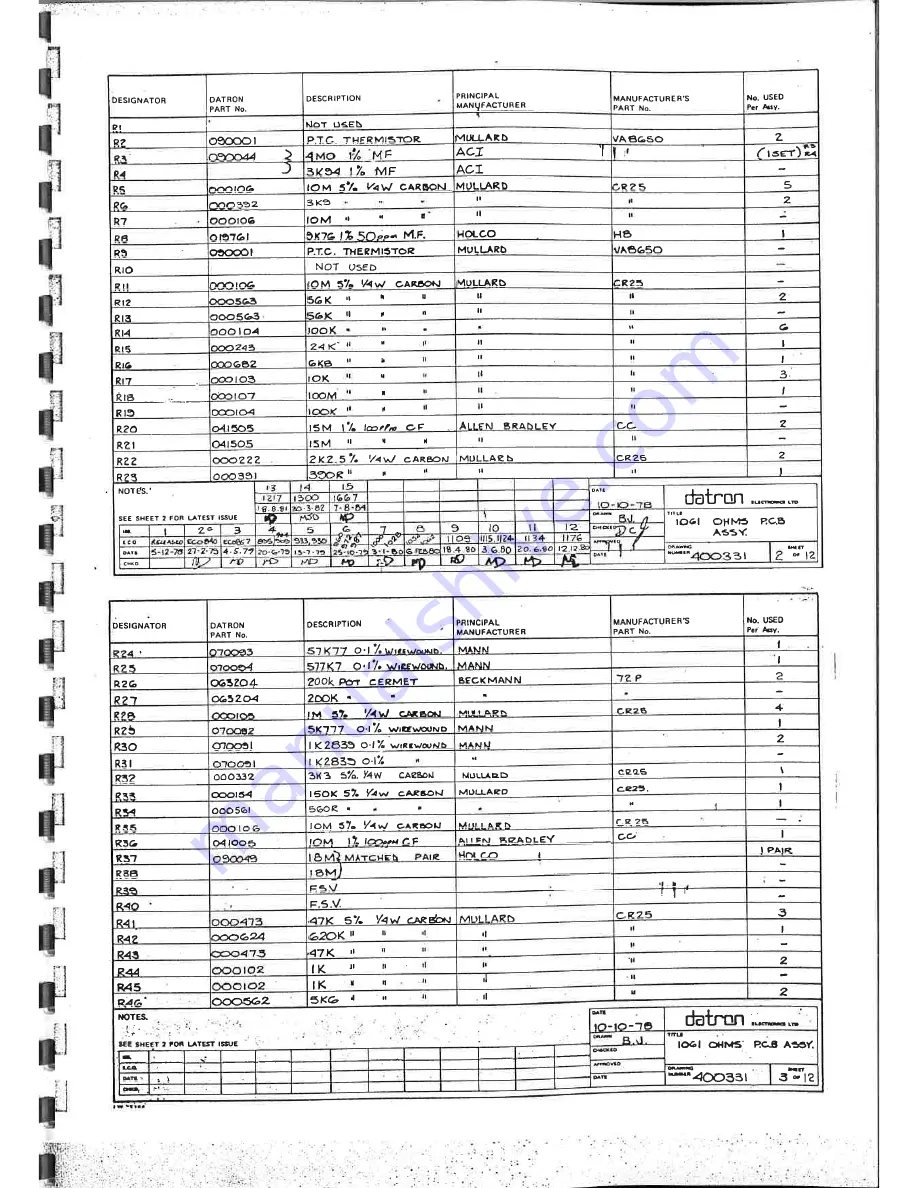 DESIGNATOR DATRON PART No. DESCRIPTION PRINCIPAL MANUFACTURER MANUFACTURER'S PART No. No. USED Per Assy.
R1 NOT USED
R2 090001 P.T.C. THERMISTOR MULLARD VA8650 2
R3 090044 4M0 1% MF ACI " " (1SET) R3 R4
R4 3K94 1% MF ACI -
R5 000106 10M 5% 1/4W CARBON MULLARD CR25 5
R6 000392 3K9 " " " " " 2
R7 000106 10M " " " " " -
R8 019761 9K76 1% 50ppm M.F. HOLCO H8 1
R9 090001 P.T.C. THERMISTOR MULLARD VA8650 -
R10 NOT USED -
R11 000106 10M 5% 1/4W CARBON MULLARD CR25 -
R12 000563 56K " " " " " 2
R13 000563 56K " " " " " -
R14 000104 100K " " " " " 6
R15 000243 24K " " " " " 1
R16 000682 6K8 " " " " " 1
R17 000103 10K " " " " " 3
R18 000107 100M " " " " " 1
R19 000104 100K " " " " " -
R20 041505 15M 1% 100ppm CF ALLEN BRADLEY CC 2
R21 041505 15M " " " " " -
R22 000222 2K2 5% 1/4W CARBON MULLARD CR25 2
R23 000391 390R " " " " " 1
NOTES.
13 14 15
1217 1300 1667
18.8.81 20.3.82 7-8-84
SEE SHEET 2 FOR LATEST ISSUE MD MJD MD
ISS. 1 2 3 4 5 6 7 8 9 10 11 12
E.C.O. RELEASED ECO840 ECO867 933,930 1109 1115,1124 1134 1176
DATE 5-12-78 27-2-79 4.5.79 20-6-79 13-7-79 25-10-79 3-1-80 6 FEB 80 18.4.80 3.6.80 20.6.80 12.12.80
CHKD. MD MD MD MD MD MD MD MD MD
DATE 10-10-78
DRAWN B.J.
CHECKED
APPROVED
DATE
datron ELECTRONICS LTD
TITLE 1061 OHMS P.C.B ASSY.
DRAWING NUMBER 400331 SHEET 2 OF 12
DESIGNATOR DATRON PART No. DESCRIPTION PRINCIPAL MANUFACTURER MANUFACTURER'S PART No. No. USED Per Assy.
R24 070093 57K77 0.1% WIREWOUND. MANN 1
R25 070094 577K7 0.1% WIREWOUND MANN 1
R26 063204 200k POT CERMET BECKMANN 72P 2
R27 063204 200K " " " " -
R28 000105 1M 5% 1/4W CARBON MULLARD CR25 4
R29 070092 5K777 0.1% WIREWOUND MANN 1
R30 070091 1K2839 0.1% WIREWOUND MANN 2
R31 070091 1K2839 0.1% " " -
R32 000332 3K3 5% 1/4W CARBON MULLARD CR25 1
R33 000154 150K 5% 1/4W CARBON MULLARD CR25. 1
R34 000561 560R " " " " 1
R35 000106 10M 5% 1/4W CARBON MULLARD CR25 -
R36 041005 10M 1% 100ppm CF ALLEN BRADLEY CC 1
R37 090049 18M } MATCHED PAIR HOLCO 1 PAIR
R38 18M } -
R39 F.S.V -
R40 F.S.V. -
R41 000473 47K 5% 1/4W CARBON MULLARD CR25 3
R42 000624 620K " " " " " 1
R43 000473 47K " " " " " -
R44 000102 1K " " " " " 2
R45 000102 1K " " " " " -
R46 000562 5K6 " " " " " 2
NOTES.
SEE SHEET 2 FOR LATEST ISSUE
ISS.
E.C.O.
DATE
CHKD.
DATE 10-10-78
DRAWN B.J.
CHECKED
APPROVED
DATE
datron ELECTRONICS LTD
TITLE 1061 OHMS P.C.B ASSY.
DRAWING NUMBER 400331 SHEET 3 OF 12
manualshive.com